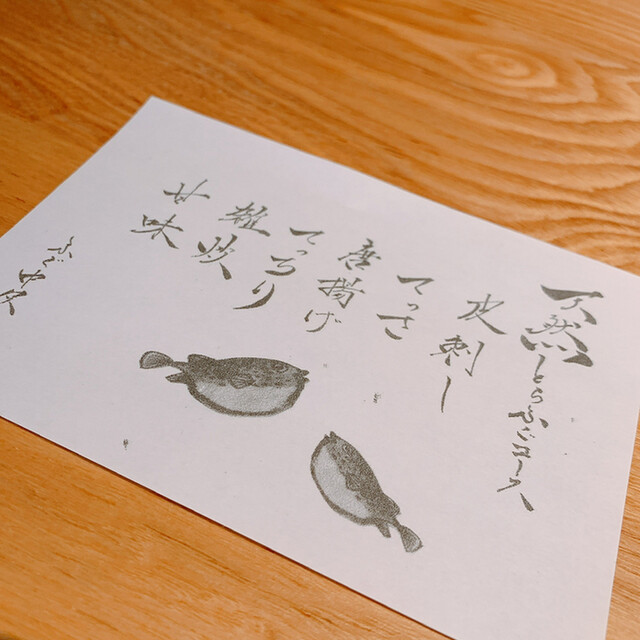 天然とらふぐコース
皮刺し
てっさ
唐揚げ
てっちり
雑炊
甘味